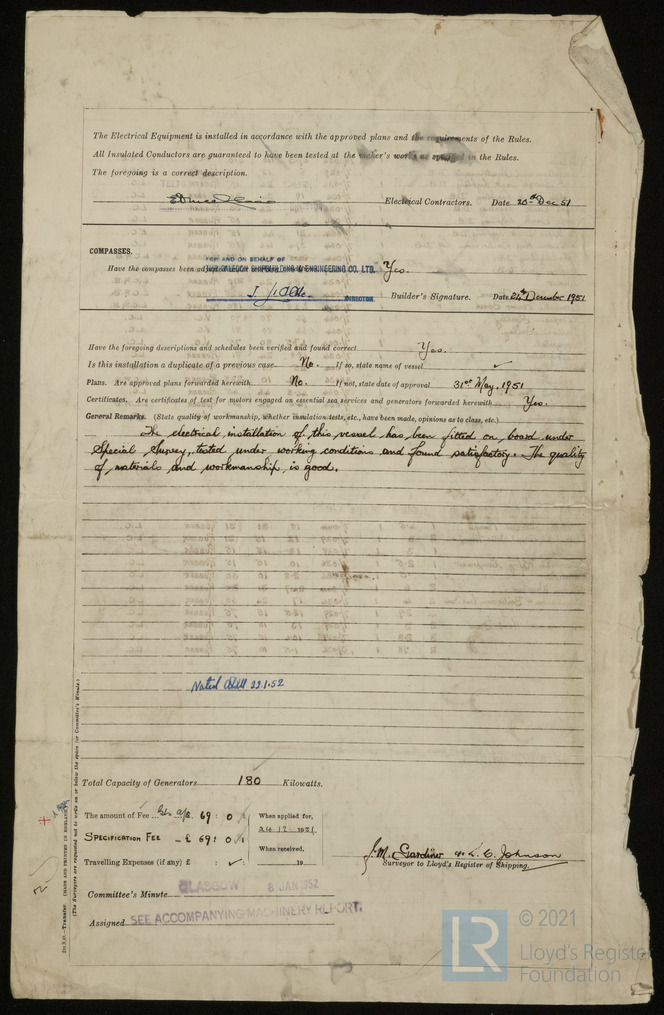 The Electrical Equipment is installed in accordance with the approved plans and the requirements of the Rules.
All Insulated Conductors are guaranteed to have been tested at the maker's works as specified in the Rules.
The foregoing is a correct description.
Electrical Contractors. Date 20th Dec 51
COMPASSES.
FOR AND ON BEHALF OF
Have the compasses been SHIPBUILDING & ENGINEERING CO. LTD. Yes.
DIRECTOR. Builder's Signature. Date 24th December 1951
Have the foregoing descriptions and schedules been verified and found correct Yes.
Is this installation a duplicate of a previous case No. If so, state name of vessel ✓
Plans. Are approved plans forwarded herewith No. If not, state date of approval 31st May, 1951
Certificates. Are certificates of test for motors engaged on essential sea services and generators forwarded herewith Yes.
General Remarks. (State quality of workmanship, whether insulation tests, etc., have been made, opinions as to class, etc.)
The electrical installation of this vessel has been fitted on board under
Special Survey, tested under working conditions and found satisfactory. The quality
of materials and workmanship is good.
Noted 22.1.52
Total Capacity of Generators 180 Kilowatts.
The amount of Fee 69 : 0 When applied for,
24 12 1951
SPECIFICATION FEE £ 69 : 0
When received,
Travelling Expenses (if any) £ : ✓ : 19
J. M. Gardiner & L. C. Johnson
Surveyor to Lloyd's Register of Shipping.
Committee's Minute GLASGOW 8 JAN 1952
Assigned SEE ACCOMPANYING MACHINERY REPORT.
Transfer. (MADE AND PRINTED IN ENGLAND.)
(The Surveyors are requested not to write on or below the space for Committee's Minute.)
LR © 2021
Lloyd's Register
Foundation